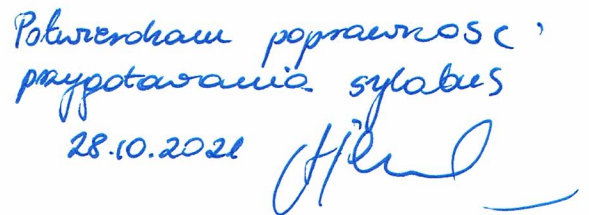 Potwierdzam poprawność
przygotowania sylabus
28.10.2021